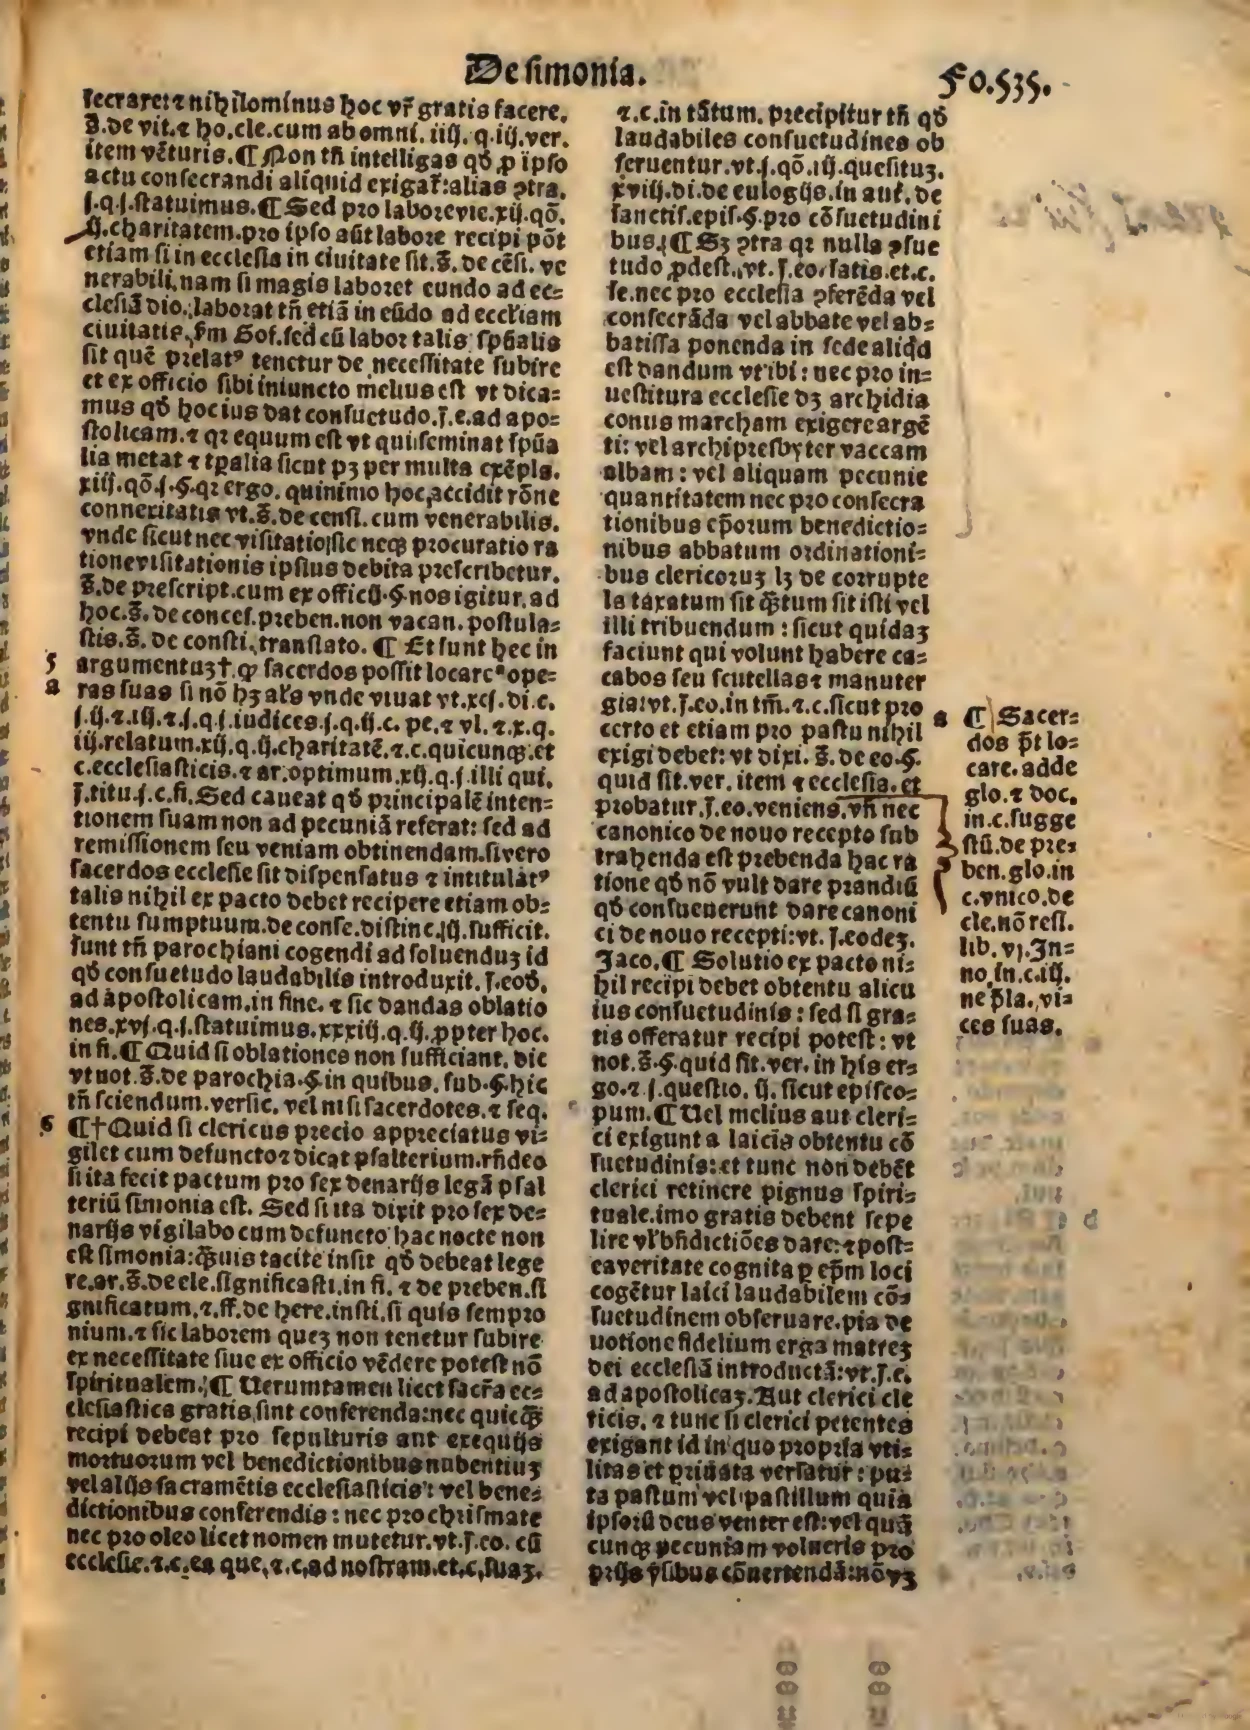 De simonia.
Fo.535.
secrare:⁊ nihilominus hoc vr̃ gratis facere.
s̄.de vit.⁊ ho.cle.cum ab omni. iiij. q.iij.ver.
item vẽturis.¶ Non tñ intelligas qđ ꝓ ipso
actu consecrandi aliquid exigat̃:alias ꝯtra.
j.q.j.statuimus.¶ Sed pro labore vie.xij.qõ.
ij.charitatem.pro ipso aũt labore recipi põt
etiam si in ecclesia in ciuitate sit.s̄. de cẽsi. ve
nerabili.nam si magis laboret eundo ad ec=
clesiã dio.laborat tñ etiã in eũdo ad eccl̃iam
ciuitatis.ẜm Gof.sed cũ labor talis sp̃ualis
sit quẽ prelatꝰ tenetur de necessitate subire
et ex officio sibi iniuncto melius est vt dica=
mus qđ hoc ius dat consuetudo.j̄.e.ad apo=
stolicam.⁊ qꝛ equum est vt qui seminat sp̃ua
lia metat ⁊ tp̃alia sicut pꝫ per multa exẽpla.
xiij.qõ.j.§.qꝛ ergo. quinimo hoc accidit rõne
connexitatis vt.s̄.de censi. cum venerabilis.
vnde sicut nec visitatio sic neqꝫ procuratio ra
tione visitationis ipsius debita prescribetur.
s̄.de prescript.cum ex officij.§.nos igitur.ad
hoc.s̄. de conces.preben.non vacan. postula=
stis.s̄. de consti.translato. ¶ Et sunt hec in
5 argumentuꝫ† ꝙ sacerdos possit locareᵃ ope=
a ras suas si nõ hꝫ al̃s vnde viuat vt.xcj.di.c.
j.ij.⁊.iij.⁊.j.q.j.iudices.j.q.ij.c. pe.⁊ vl.⁊.x.q.
iij.relatum.xij.q.ij.charitatẽ.⁊.c.quicunqꝫ.et
c.ecclesiasticis.⁊ ar.optimum.xij.q.j.illi qui.
j̄.titu.j.c.fi.Sed caueat qđ principalẽ inten=
tionem suam non ad pecuniã referat: sed ad
remissionem seu veniam obtinendam.si vero
sacerdos ecclesie sit dispensatus ⁊ intitulatꝰ
talis nihil ex pacto debet recipere etiam ob=
tentu sumptuum.de conse.distinc.iij.sufficit.
sunt tñ parochiani cogendi ad soluenduꝫ id
qđ consuetudo laudabilis introduxit.j̄.eod̃.
ad apostolicam.in fine. ⁊ sic dandas oblatio
nes.xvj.q.j.statuimus.xxxiij.q.ij.ꝓpter hoc.
in fi.¶ Quid si oblationes non sufficiant. dic
vt not.s̄.de parochia.§.in quibus. sub.§.hic
tñ sciendum.versic. vel nisi sacerdotes.⁊ seq.
6 ¶†Quid si clericus precio appreciatus vi=
gilet cum defuncto⁊ dicat psalterium.rñdeo
si ita fecit pactum pro sex denarijs legã psal
teriũ simonia est. Sed si ita dixit pro sex de=
narijs vigilabo cum defuncto hac nocte non
est simonia:q̃uis tacite insit qđ debeat lege
re.ar.s̄.de ele.significasti.in fi. ⁊ de preben.si
gnificatum.⁊.ff.de here.insti.si quis sempro
nium.⁊ sic laborem queꝫ non tenetur subire
ex necessitate siue ex officio vẽdere potest nõ
spiritualem.¶ Uerumtamen licet sacr̃a ec=
clesiastica gratis sint conferenda:nec quicq̃ꝫ
recipi debeat pro sepulturis aut exequijs
mortuorum vel benedictionibus nubentiuꝫ
vel alijs sacramẽtis ecclesiasticis: vel bene=
dictionibus conferendis: nec pro chrismate
nec pro oleo licet nomen mutetur.vt.j̄.eo. cũ
ecclesie.⁊.c.ea que.⁊.c.ad nostram.et.c.suaꝫ.
⁊.c.in tãtum. precipitur tñ qđ
laudabiles consuetudines ob
seruentur.vt.j.qõ.iij.quesituꝫ.
xviij.di.de eulogijs.in aut̃. de
sanctis.epis.§.pro cõsuetudini
bus.¶ Sꝫ ꝯtra qꝛ nulla ꝯsue
tudo ꝓdest.vt. j̄.eo.satis.et.c.
se.nec pro ecclesia ꝯferẽda vel
consecrãda vel abbate vel ab=
batissa ponenda in sede aliqđ
est dandum vt ibi: nec pro in=
uestitura ecclesie dꝫ archidia
conus marcham exigere argẽ
ti: vel archipresbyter vaccam
albam: vel aliquam pecunie
quantitatem nec pro consecra
tionibus ep̃orum benedictio=
nibus abbatum ordinationi=
bus clericoruꝫ lꝫ de corrupte
la taxatum sit q̃tum sit isti vel
illi tribuendum: sicut quidaꝫ
faciunt qui volunt habere ca=
cabos seu scutellas⁊ manuter
gia:vt.j̄.eo.in tm̃.⁊.c.sicut pro
certo et etiam pro pastu nihil
exigi debet: vt dixi. s̄. de eo.§.
quid sit.ver. item ⁊ ecclesia. et
probatur.j̄.eo.veniens.vñ nec
canonico de nouo recepto sub
trahenda est prebenda hac ra
tione qđ nõ vult dare prandiũ
qđ consueuerunt dare canoni
ci de nouo recepti:vt. j̄.eodeꝫ.
Jaco.¶ Solutio ex pacto ni=
hil recipi debet obtentu alicu
ius consuetudinis: sed si gra=
tis offeratur recipi potest: vt
not.s̄.§.quid sit.ver. in his er=
go.⁊ j.questio. ij. sicut episco=
pum.¶ Uel melius aut cleri=
ci exigunt a laicis obtentu cõ
suetudinis:et tunc non debẽt
clerici retinere pignus spiri=
tuale.imo gratis debent sepe
lire vl̃ bñdictiões dare:⁊ post=
ea veritate cognita ꝑ ep̃m loci
cogẽtur laici laudabilem cõ=
suetudinem obseruare.pia de
uotione fidelium erga matreꝫ
dei ecclesiã introductã:vt.j̄.e.
ad apostolicaꝫ. Aut clerici cle
ricis. ⁊ tunc si clerici petentes
exigant id in quo propria vti=
litas et priuata versatur: pu=
ta pastum vel pastillum quia
ipsorũ deus venter est:vel quã
cunqꝫ pecuniam volueris pro
prijs vsibus cõuertendã:nõ vꝫ
a ¶ Sacer=
dos p̃t lo=
care. adde
glo.⁊ doc.
in.c.sugge
stũ.de pre=
ben.glo.in
c.vnico.de
cle.nõ resi.
lib. vj. In=
no.in.c.iij.
ne p̃la. vi=
ces suas.